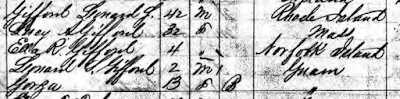 Gifford Lynard S. 42 m Rhode Island
Lucy A Gifford 32 f Mass
Ella R. Gifford 4 " Norfolk Island
Lynard S. Gifford 2 m Guam
13 f B "